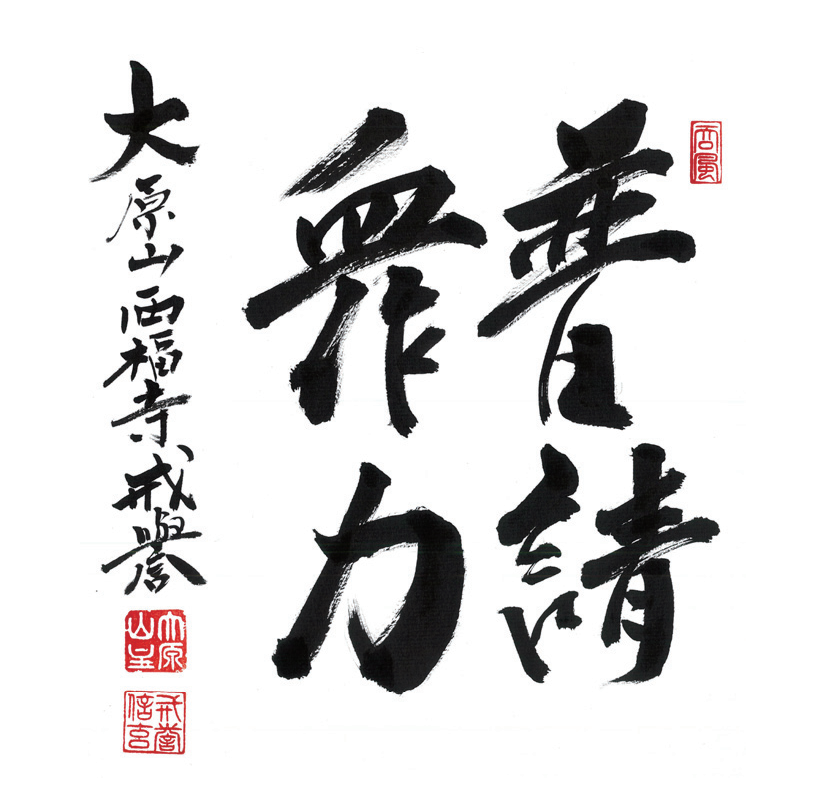 普請
衆力
大原山西福寺戒譽
大原山主
戒誉